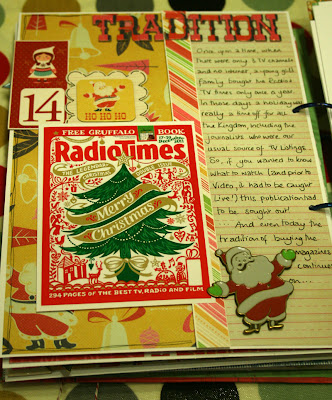 TRADITION
14
HO HO HO
Once upon a time, when
there were only 3 TV channels
and no internet, a young girl's
family bought the Radio
TV Times only once a year.
In those days a holiday was
really a time off for all
the Kingdom, including the
journalists who were our
usual source of TV listings.
So, if you wanted to know
what to watch (and prior to
Video, it had to be caught
Live!) this publication had
to be sought out!
And even today the
tradition of buying the
magazines
continues
on...
FREE GRUFFALO BOOK
RadioTimes
THE LEGENDARY
CHRISTMAS
Merry
Christmas
294 PAGES OF THE BEST TV, RADIO AND FILM